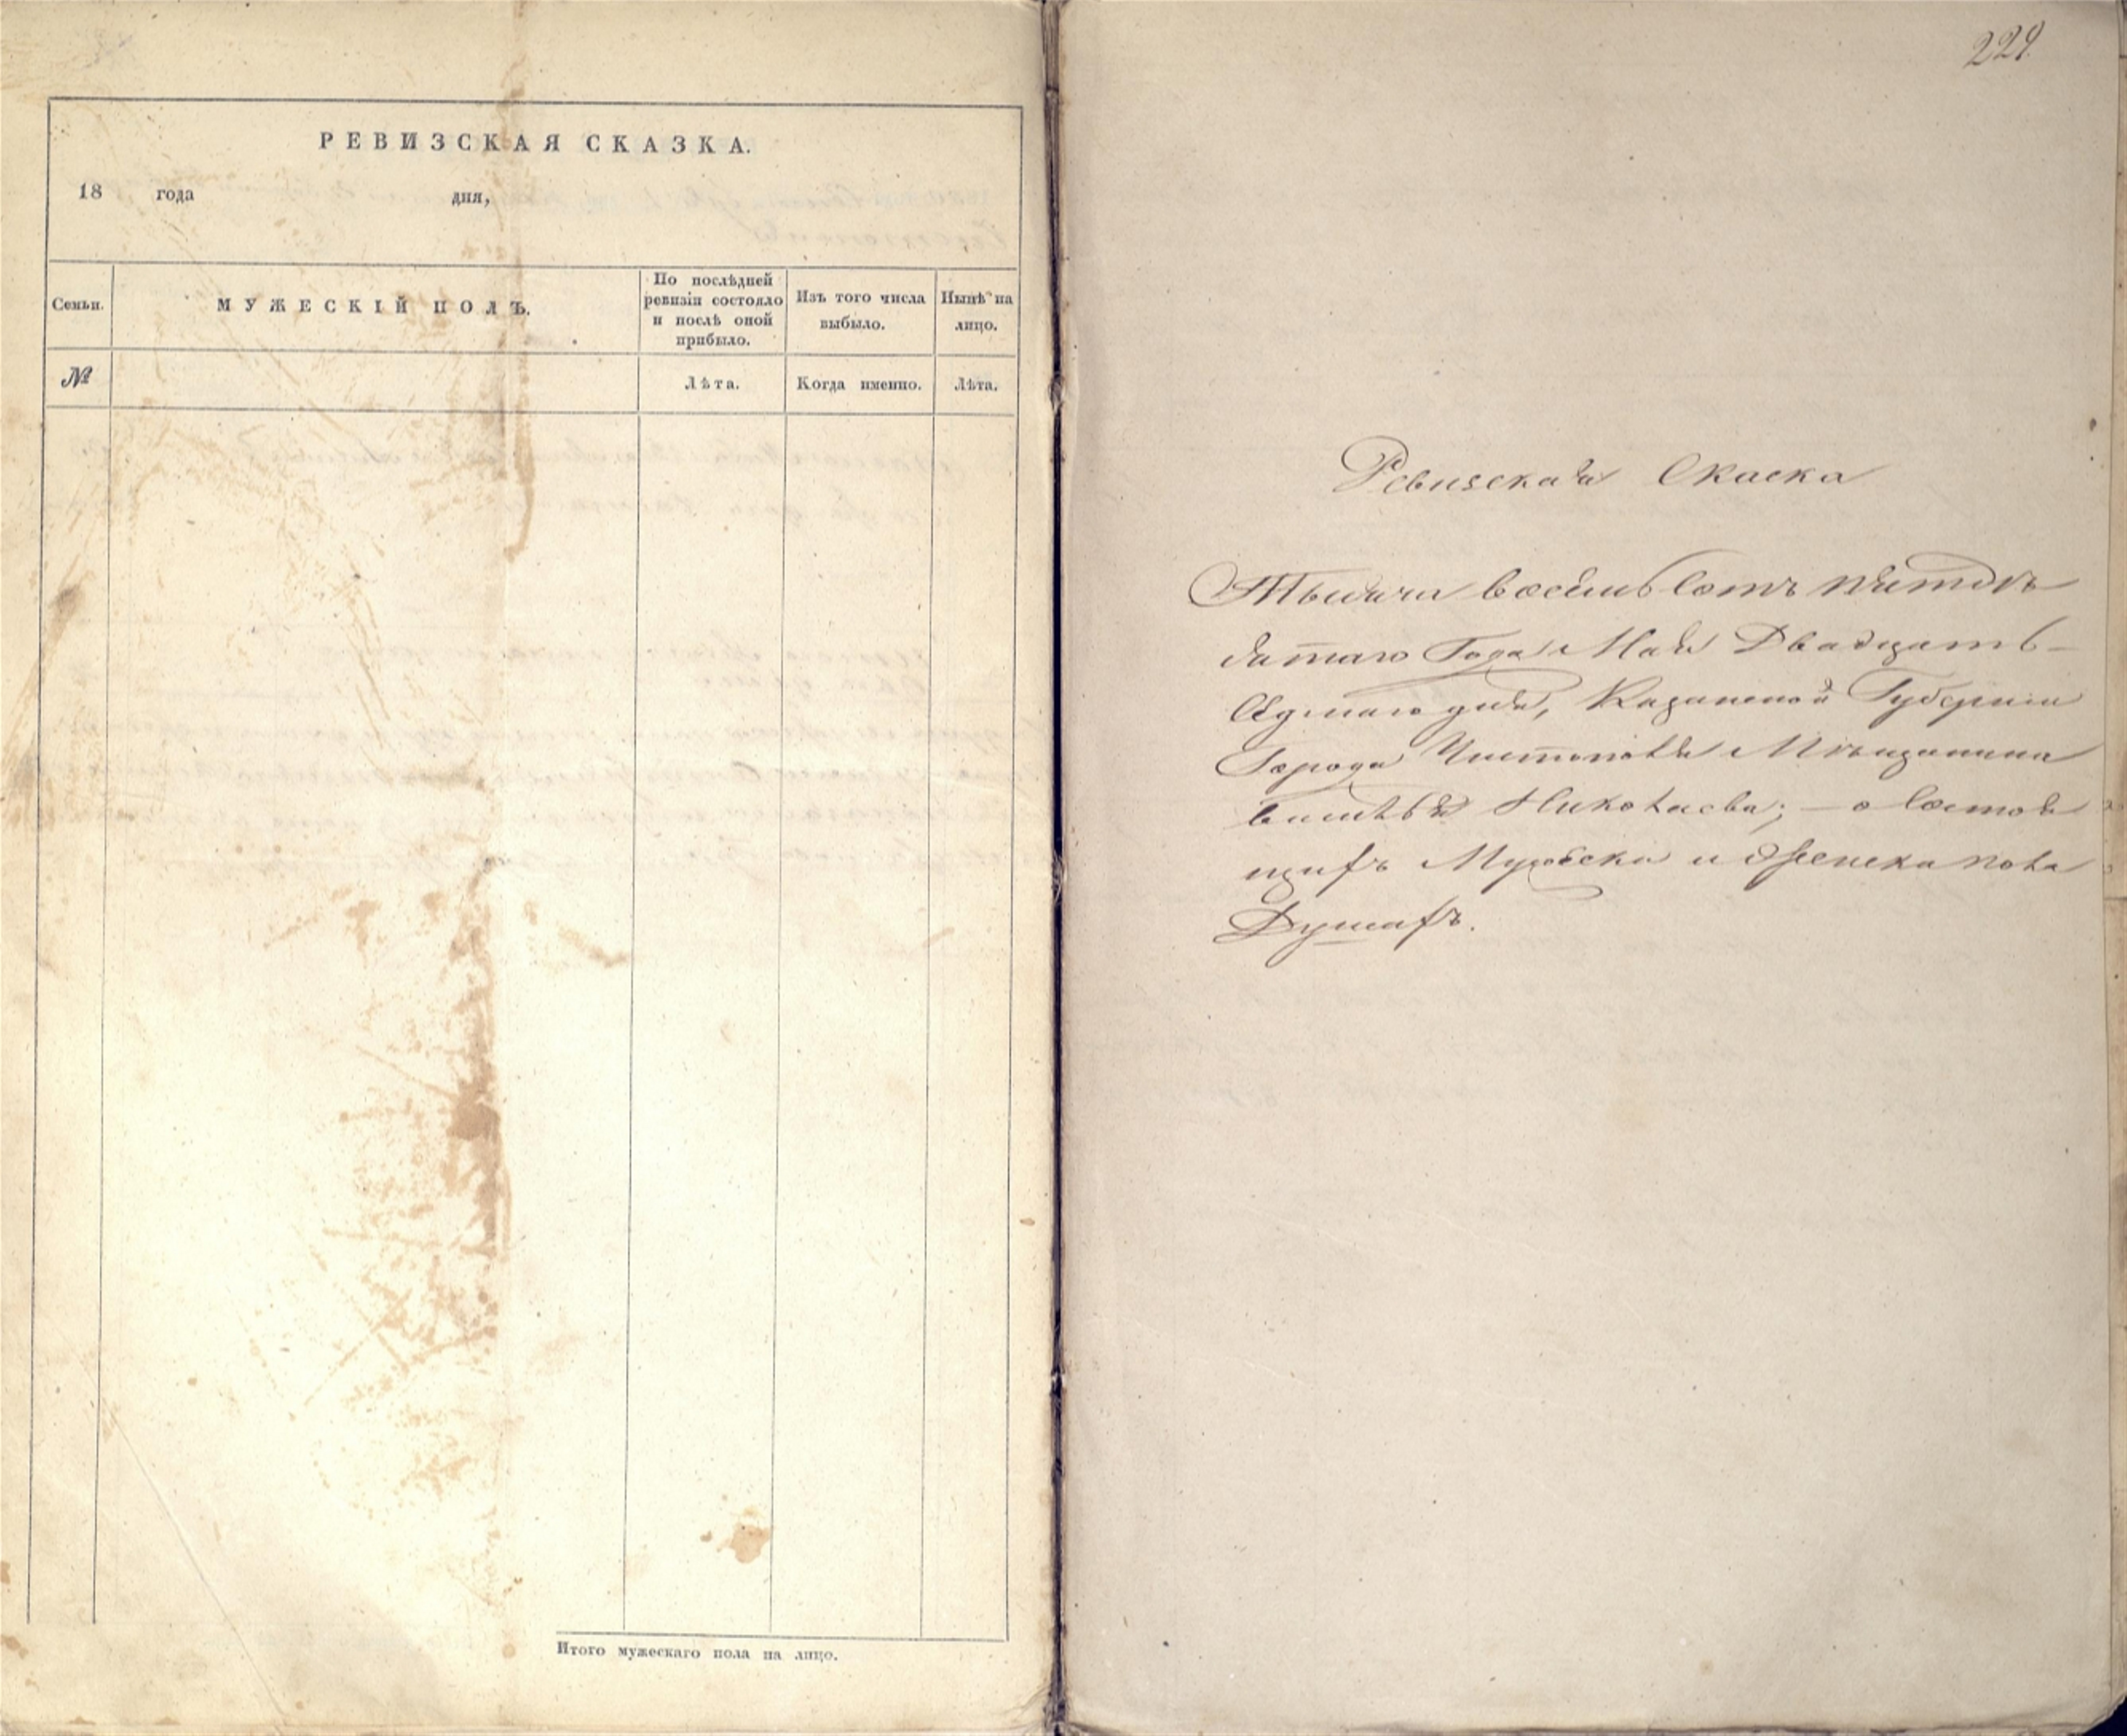 РЕВИЗСКАЯ СКАЗКА.
18 года дня,
Семьи.
МУЖЕСКІЙ ПОЛЪ.
По послѣдней
ревизіи состояло
и послѣ оной
прибыло.
Изъ того числа
выбыло.
Нынѣ на
лицо.
№
Лѣта.
Когда именно.
Лѣта.
Итого мужескаго пола на лицо.
229
Ревизская Скаска
Тысяча восемь сотъ пятде
сятаго Года Мая Двадцать
Седмаго дня, Казанской Губерніи
Города Чистополя Мѣщанина
Николаева; — о состоя
щихъ Мужеска и Женска пола
Душахъ.